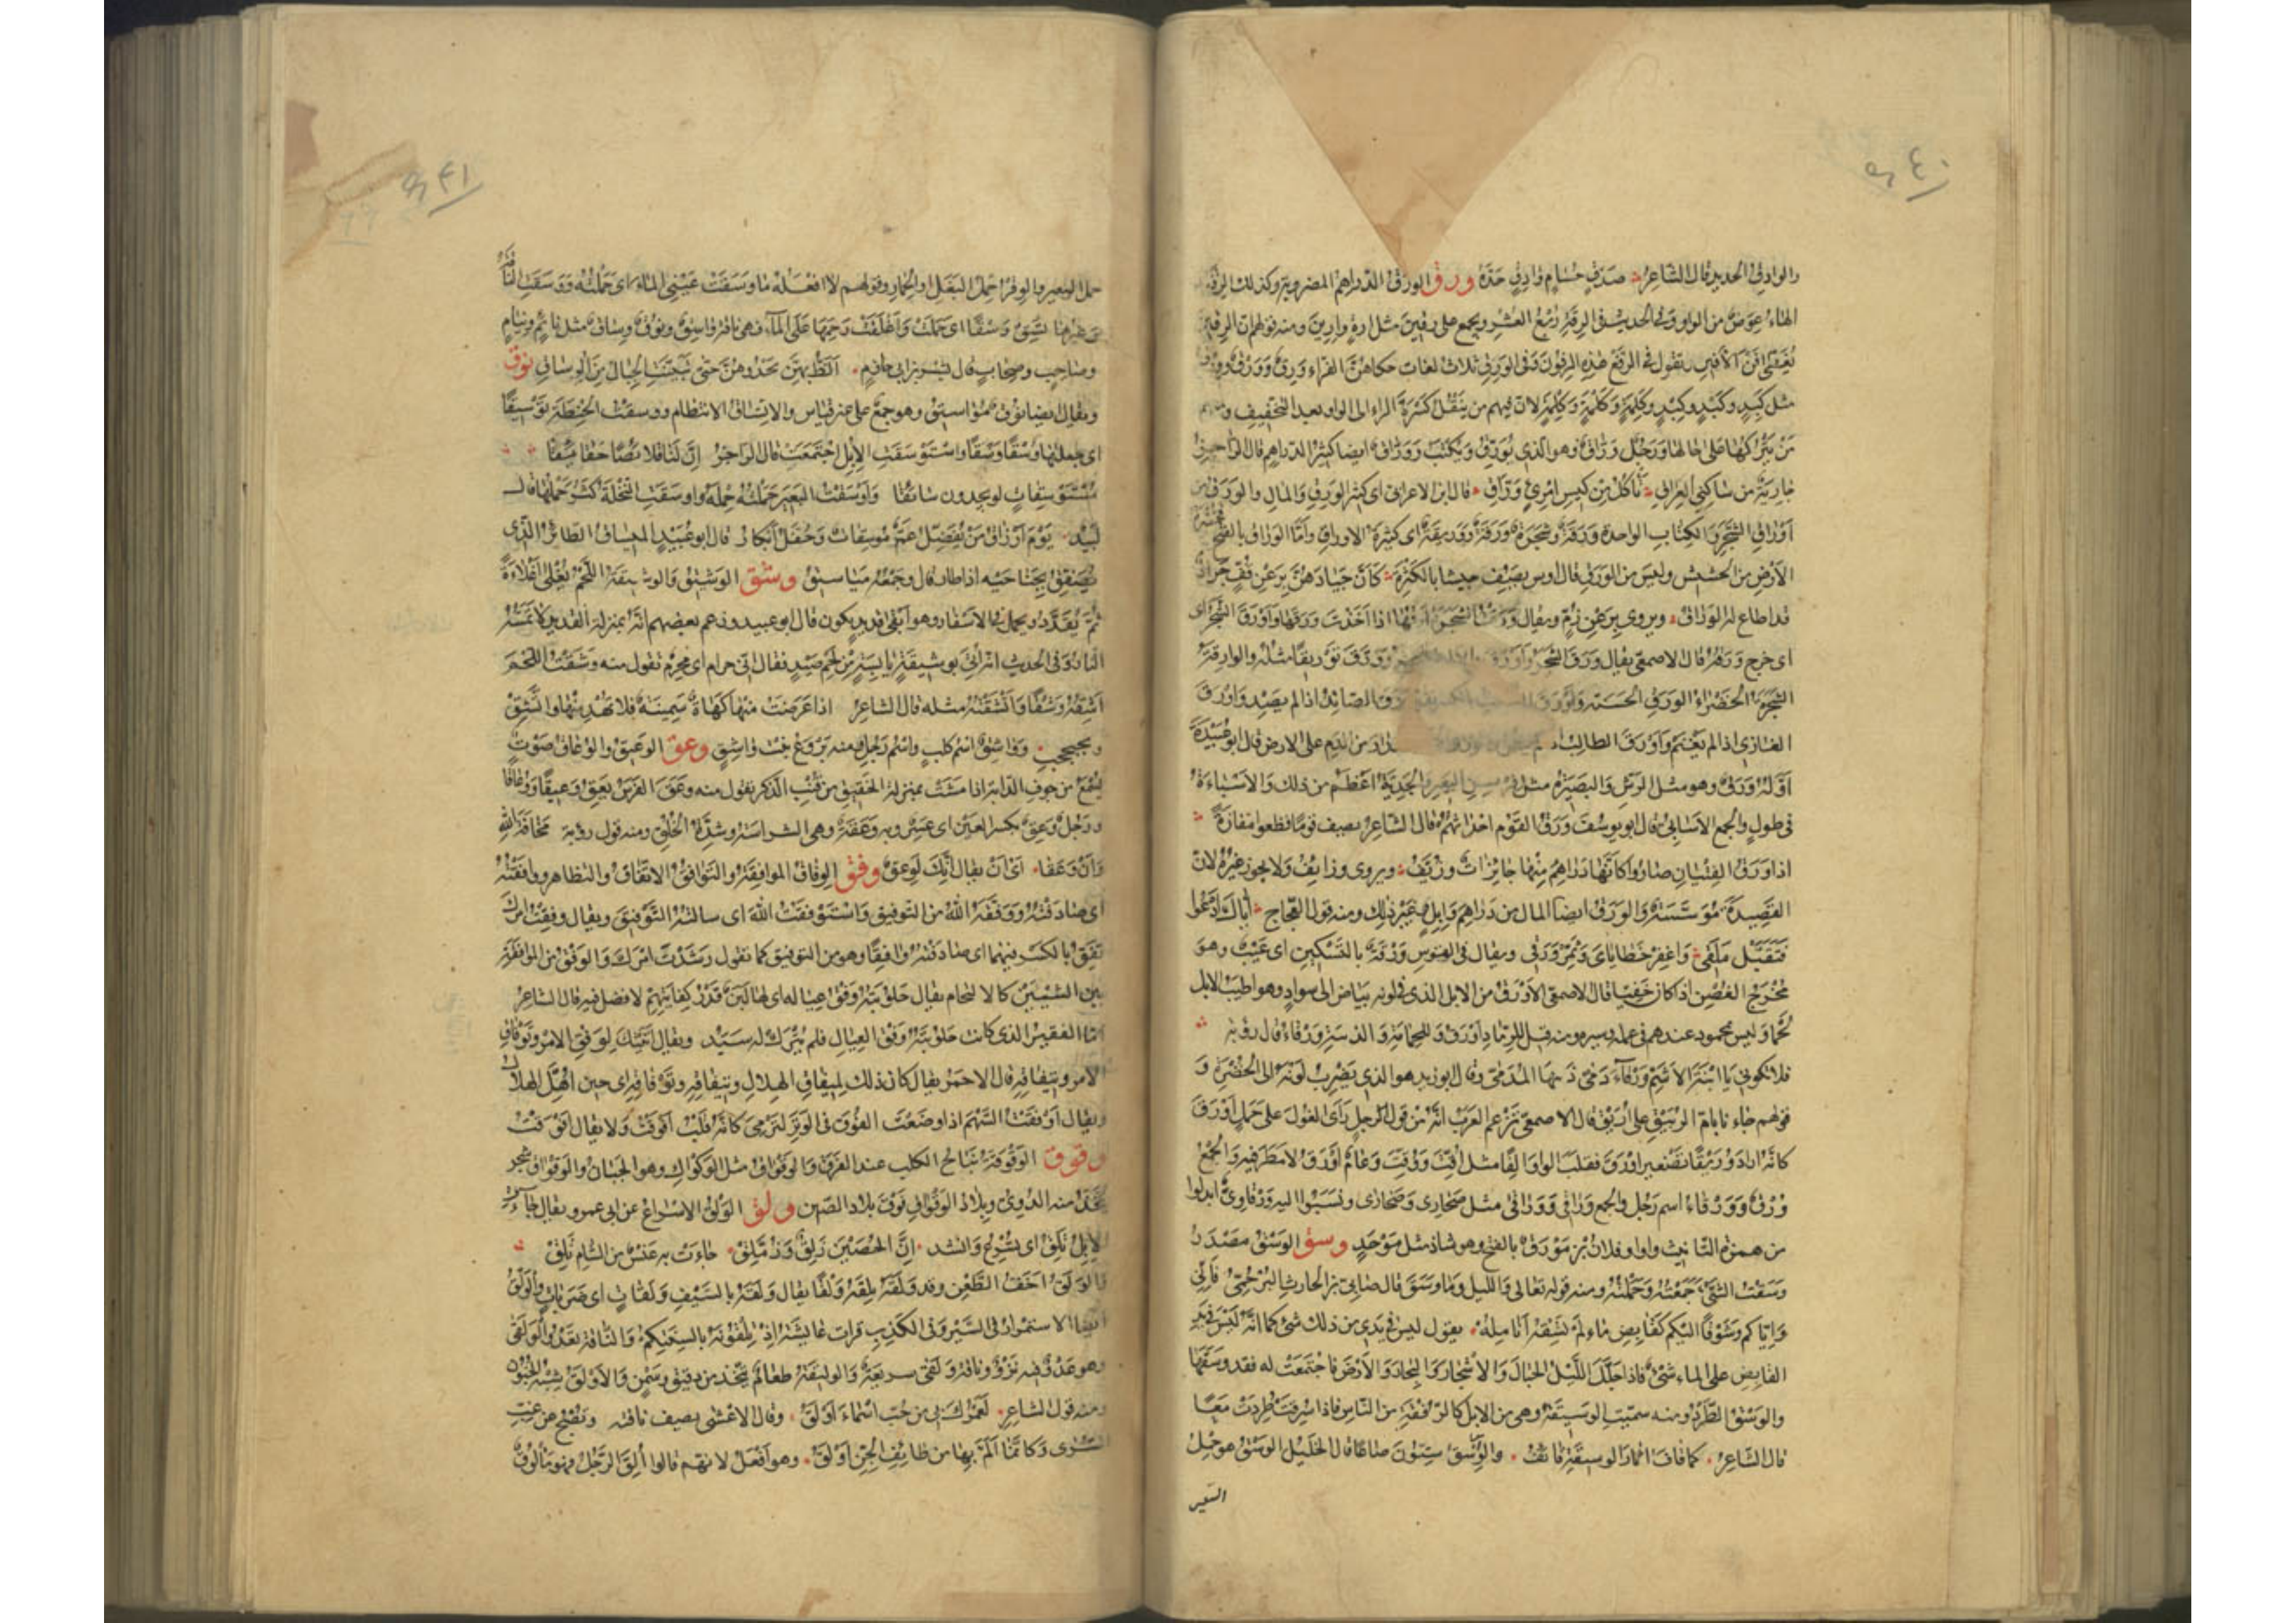 والوادق الحديد قال الشاعر صدق حسام وادق حده ورق الورق الدراهم المضروبة وكذلك الرقة
الهاء عوض من الواو وفي الحديث في الرقة ربع العشر ويجمع على رقين مثل ارة وارين ومنه قولهم ان الرقين
تغطى افن الافين تقول في الرفع هذه الرقون وفى الورق ثلاث لغات حكاهن الفراء ورق وورق وورق
مثل كبد وكبد وكبد وكلمة وكلمة وكلمة لان فيهم من ينقل كسرة الراء الى الواو بعد التخفيف ومنهم
من يتركها على حالها ورجل وراق وهو الذي يورق ويكتب ووراق ايضا كثير الدراهم قال الراجز
جارية من ساكني العراق تأكل من كيس امرئ وراق قال ابن الاعرابي اى كثير الورق والمال والورق من
اوراق الشجر والكتاب الواحدة ورقة وشجرة ورقة ووريقة اى كثيرة الاوراق واما الوراق بالفتح خضرة
الارض من الحشيش وليس من الورق قال اوس يصف جيشا بالكثرة كان جيادهن برعن قف جراد
قد اطاع له الوراق ويروى برعن زم ويقال ورقت الشجرة ارقها اذا اخذت ورقها واورق الشجر اى
اى خرج ورقه قال الاصمعي يقال ورق الشجر واورق وورق توريقا مثله والوارقة
الشجرة الخضراء الورق الحسنة واورق الصائد اذا لم يصد واورق
الغازى اذا لم يغنم واورق الطالب من الدم على الارض قال ابو عبيدة
اوله ورق وهو مثل الرش والبصيرة مثل فرسن البعير والجدية اعظم من ذلك والاسباءة
فى طول والجمع الاسابى قال ابو يوسف ورق القوم احداثهم قال الشاعر يصف قوما قطعوا مفازة
اذا ورق الفتيان صاروا كانها دراهم منها جائزات وزيف ويروى وزايف ولا يجوز غيره لان
القصيدة مؤسسة والورق ايضا المال من دراهم وابل وغير ذلك ومنه قول العجاج اياك ادعوا
فتقبل ملقى واغفر خطاياى وثمر ورقى ويقال فى القوس ورقة بالتسكين اى عيب وهو
مخرج الغصن اذا كان خفيا قال الاصمعي الاورق من الابل الذى فى لونه بياض الى سواد وهو اطيب الابل
لحما وليس بمحمود عندهم فى عمله وسيره ومنه قيل للرماد اورق وللحمامة والذئبة ورقاء قال رؤبة
فلا تكوني يا ابنة الاشم ورقاء دمى ذئبها المدمى وقال ابو زيد هو الذي يضرب لونه الى الخضرة و
قولهم جاءنا بام الربيق على اريق قال الاصمعي تزعم العرب انه من قول الرجل رأى الغول على جمل اورق
كانه اراد وريقا تصغير اورق فقلب الواو الفا مثل اقتت ووقتت وعام اورق لا مطر فيه والجمع
ورق وورقاء اسم رجل والجمع وراق ووراقى مثل صحارى وصحارى ونسبوا اليه ورقاوى ابدلوا
من همزة التانيث واوا وفلان بن مورق بالفتح وهو شاذ مثل موحد وسق الوسق مصدر
وسقت الشئ جمعته وحملته ومنه قوله تعالى والليل وما وسق قال ضابئ بن الحارث البرجمي فانى
واياكم وشوقا اليكم كقابض ماء لم تسقه انامله يقول ليس في يدى من ذلك شئ كما انه ليس فى يد
القابض على الماء شئ فاذا جلل الليل الجبال والاشجار والبحار والارض فاجتمعت له فقد وسقها
والوسق الطرد ومنه سميت الوسيقة وهى من الابل كالرفقة من الناس فاذا سرقت طردت معا
قال الشاعر كما قاف اثار الوسيقة قائف والوسق ستون صاعا قال الخليل الوسق هو حمل
البعير
حمل البعير والوقر حمل البغل او الحمار وقولهم لا افعله ما وسقت عينى الماء اى حملته ووسقت الناقة
وغيرها تسق وسقا اى حملت واغلقت رحمها على الماء فهى ناقة واسق ونوق وساق مثل نائم ونيام
وصاحب وصحاب قال بشر بن ابي خازم الظ بهن يحدوهن حتى تبينت الحيال من الوساق نوق
ويقال ايضا نوق مواسيق وهو جمع على غير قياس والاتساق الانتظام ووسقت الحنطة توسيقا
اى جعلتها وسقا وسقا واستوسقت الابل اجتمعت قال الراجز ان لنا قلائصا حقائقا
مستوسقات لو يجدون سائقا واوسقت البعير حملته حمله واوسقت النخلة كثر حملها قال
لبيد يوم ارزاق من تفضل عم موسقات وحفل ابكار قال ابو عبيد الميساق الطائر الذى
يصفق بجناحيه اذا طار قال وجمعه مياسيق وشق الوشيق والوشيقة اللحم يغلى اغلاءة
ثم يقدد ويحمل فى الاسفار وهو ابقى قديد يكون قال ابو عبيد وزعم بعضهم انه بمنزلة القديد لا تمسه
النار وفى الحديث انه اتي بوشيقة يابسة من لحم صيد فقال انى حرام اى محرم تقول منه وشقت اللحم
اشقه وشقا واتشقته مثله قال الشاعر اذا عرضت منها كهاة سمينة فلا تهد منها واتشق
وتجبجب وواشق اسم كلب واسم رجل ومنه بروع بنت واشق وعق الوعيق والوعاق صوت
يسمع من جوف الدابة اذا مشت بمنزلة الخقيق من قنب الذكر تقول منه وعق الفرس يعق وعيقا ووعاقا
ورجل وعق بكسر العين اى عسر وبه وعقة وهى الشراسة وشدة الخلق ومنه قول رؤبة مخافة الله
وان وعقا اى ان يقال انك لوعق وفق الوفاق الموافقة والتوافق الاتفاق والتظاهر ووافقته
اى صادفته ووفقه الله من التوفيق واستوفقت الله اى سالته التوفيق ويقال وفقت امرك
تفق بالكسر فيهما اى صادفته وافقا وهو من التوفيق كما تقول رشدت امرك والوفق من الموافقة
بين الشيئين كالالتحام يقال حلوبته وفق عياله اى لها لبن قدر كفايتهم لا فضل فيه قال الشاعر
اما الفقير الذى كانت حلوبته وفق العيال فلم يترك له سبد ويقال اتيتك لوفق الامر وتوفاق
الامر وتيفاقه قال الاحمر يقال كان ذلك لميفاق الهلال وتيفاقه وتوفاقه اى حين اهل الهلال
ويقال اوفقت السهم اذا وضعت الفوق فى الوتر لترمي كانه قلب افوقت ولا يقال افوقت
وقوق الوقوقة نباح الكلب عند الفرق والوقواق مثل الوكواك وهو الجبان والوقواق شجر
يتخذ منه الدوى وبلاد الوقواق فوق بلاد الصين ولق الولق الاسراع عن ابى عمرو يقال جاءت
الابل تلق اى تسرع وانشد ان الحصين زلق وزملق جاءت به عنس من الشام تلق
والولق اخف الطعن وقد ولقه يلقه ولقا يقال ولقه بالسيف ولقات اى ضربات والولق
ايضا الاستمرار فى السير وفى الكذب قرات عائشة اذ تلقونه بالسنتكم والناقة تعدو الولقى
وهو عدو فيه نزو وناقة ولقى سريعة والوليقة طعام يتخذ من دقيق وسمن والاولق شبه الجنون
ومنه قول الشاعر لعمرك بى من حب اسماء اولق وقال الاعشى يصف ناقته وتصبح عن غب
السرى وكانما الم بها من طايف الجن اولق وهو افعل لانهم قالوا ألق الرجل فهو مألوق